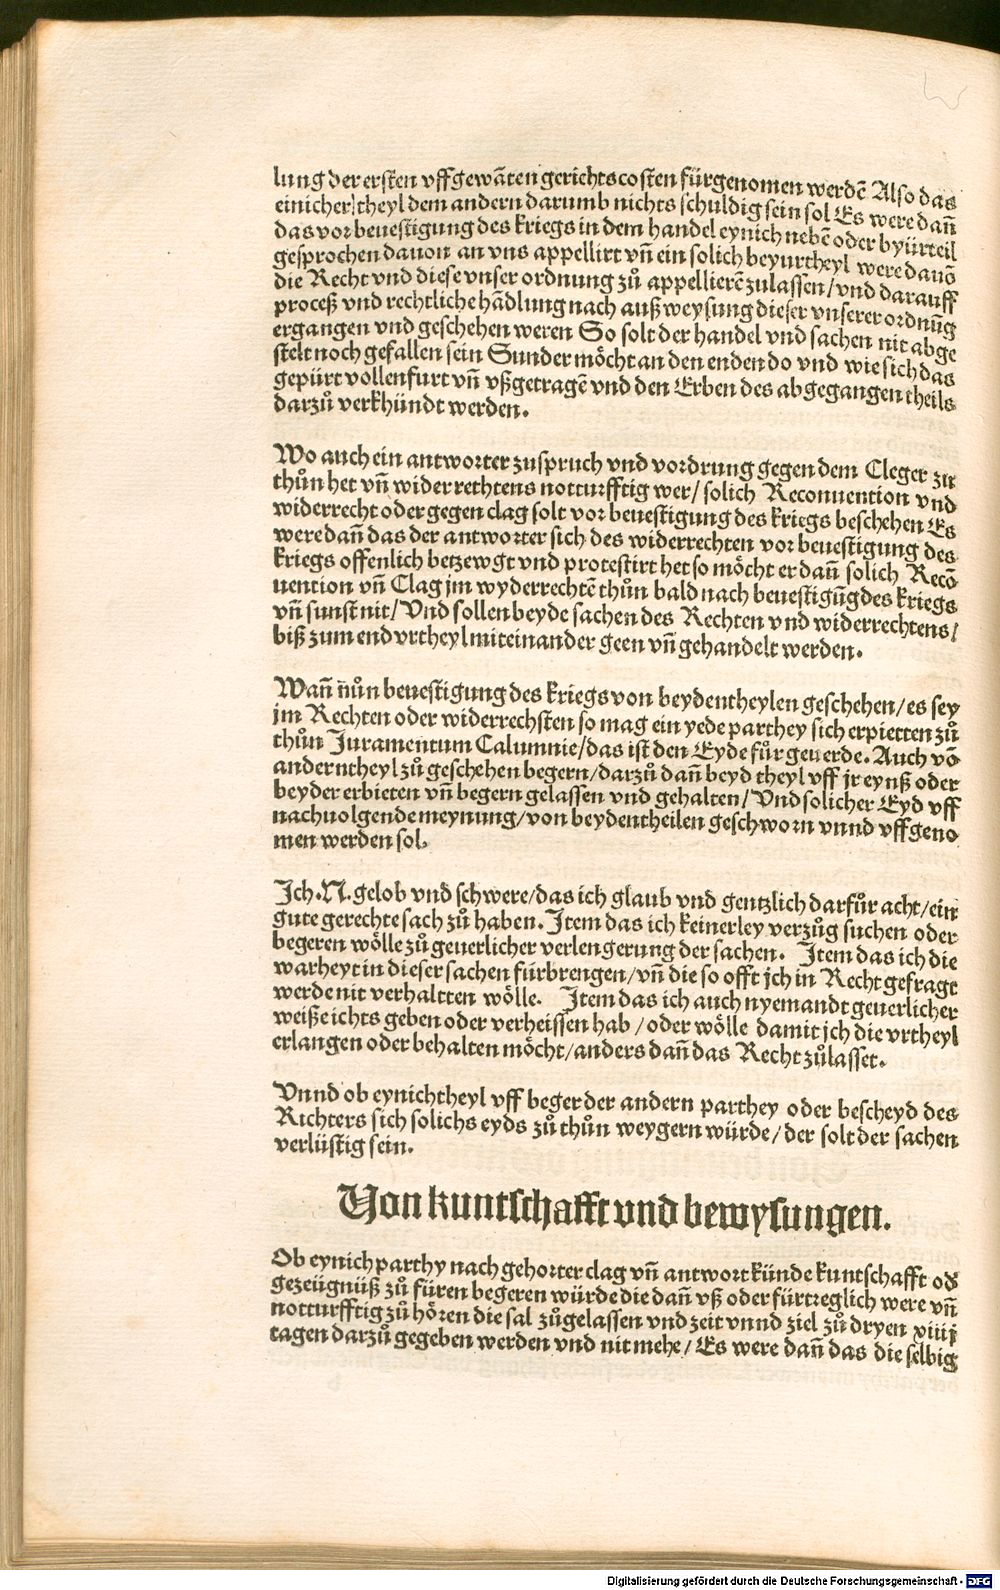 lung der ersten vffgewãten gerichtscosten fürgenomen werdẽ Also das
einicher theyl dem andern darumb nichts schuldig sein sol Es were dañ
das vor beuestigung des kriegs in dem handel eynich nebẽ oder byürteil
gesprochen dauon an vns appellirt vñ ein solich beyurtheyl were dauõ
die Recht vnd diese vnser ordnung zů appellierẽ zulassen/vnd darauff
proceß vnd rechtliche hãdlung nach auß weysung dieser vnserer ordnũg
ergangen vnd geschehen weren So solt der handel vnd sachen nit abge
stelt noch gefallen sein Sunder möcht an den enden do vnd wie sich das
gepürt vollenfurt vñ vßgetragẽ vnd den Erben des abgegangen theils
darzů verkhündt werden.
Wo auch ein antworter zuspruch vnd vordrung gegen dem Cleger zu
thůn het vñ wider rechtens notturfftig wer/ solich Reconuention vnd
widerrecht oder gegen clag solt vor beuestigung des kriegs beschehen Es
were dañ das der antworter sich des widerrechten vor beuestigung des
kriegs offenlich betzewgt vnd protestirt het so möcht er dañ solich Recõ
uention vñ Clag jm wyderrechtẽ thůn bald nach beuestigũg des kriegs
vñ sunst nit/ Vnd sollen beyde sachen des Rechten vnd widerrechtens/
biß zum end vrtheyl miteinander geen vñ gehandelt werden.
Wañ nůn beuestigung des kriegs von beydentheylen geschehen/ es sey
jm Rechten oder widerrechsten so mag ein yede parthey sich erpietten zů
thůn Juramentum Calumnie/das ist den Eyde für geuerde. Auch võ
anderntheyl zů geschehen begern/darzů dañ beyd theyl vff jr eynß oder
beyder erbieten vñ begern gelassen vnd gehalten/ Vnd solicher Eyd vff
nachuolgende meynung/von beydentheilen geschworn vnnd vffgeno
men werden sol.
Ich.N. gelob vnd schwere/das ich glaub vnd gentzlich darfür acht/ein
gute gerechte sach zů haben. Item das ich keinerley verzůg suchen oder
begeren wölle zů geuerlicher verlengerung der sachen. Item das ich die
warheyt in dieser sachen fürbrengen/vñ die so offt ich in Recht gefragt
werde nit verhaltten wölle. Item das ich auch nyemandt geuerlicher
weiße ichts geben oder verheissen hab / oder wölle damit ich die vrtheyl
erlangen oder behalten möcht/anders dañ das Recht zůlasset.
Vnnd ob eynichtheyl vff beger der andern parthey oder bescheyd des
Richters sich solichs eyds zů thůn weygern würde/ der solt der sachen
verlüstig sein.
Von kuntschafft vnd bewysungen.
Ob eynich parthy nach gehorter clag vñ antwort künde kuntschafft od̾
gezeügnüß zů füren begeren würde die dañ vß oder fürtreglich were vñ
notturfftig zů hören die sal zůgelassen vnd zeit vnnd ziel zů dryen xiiij
tagen darzů gegeben werden vnd nit mehe/ Es were dañ das die selbig
Digitalisierung gefördert durch die Deutsche Forschungsgemeinschaft - DFG